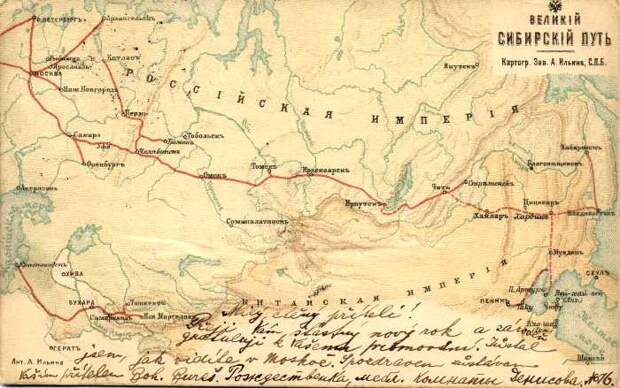 ВЕЛИКІЙ
СИБИРСКІЙ ПУТЬ
Картогр. Зав. А. Ильина, С.П.Б.
С. ПЕТЕРБУРГЪ
Архангельскъ
Котласъ
Ярославль
МОСКВА
Ниж. Новгородъ
Пермь
РОССІЙСКАЯ ИМПЕРІЯ
Якутскъ
Тобольскъ
Тюмень
Самара
Уфа
Челябинскъ
Оренбургъ
Омскъ
Томскъ
Красноярскъ
Иркутскъ
Чита
Срѣтенскъ
Хабаровскъ
Благовѣщенскъ
Цицикаръ
Хайларъ
Харбинъ
Владивостокъ
Астрахань
Семипалатинскъ
Мукденъ
СЕУЛЪ
Красноводскъ
ХИВА
БУХАРА
Ташкентъ
Самаркандъ
Нов. Маргеланъ
ГЕРАТЪ
КИТАЙСКАЯ ИМПЕРІЯ
П. Артуръ
ПЕКИНЪ
Taku
Вей-хай-вей
Шанхай
Лит. А. Ильина
Můj
příteli!
Vám šťastný nový rok a
gratuluji k Vašemu
jsem, jak vidíte v Moskvě. Spozdraven zůstávám
přítelem Boh. Bureš. Рождественка, мебл. комнаты Денисова, №76.